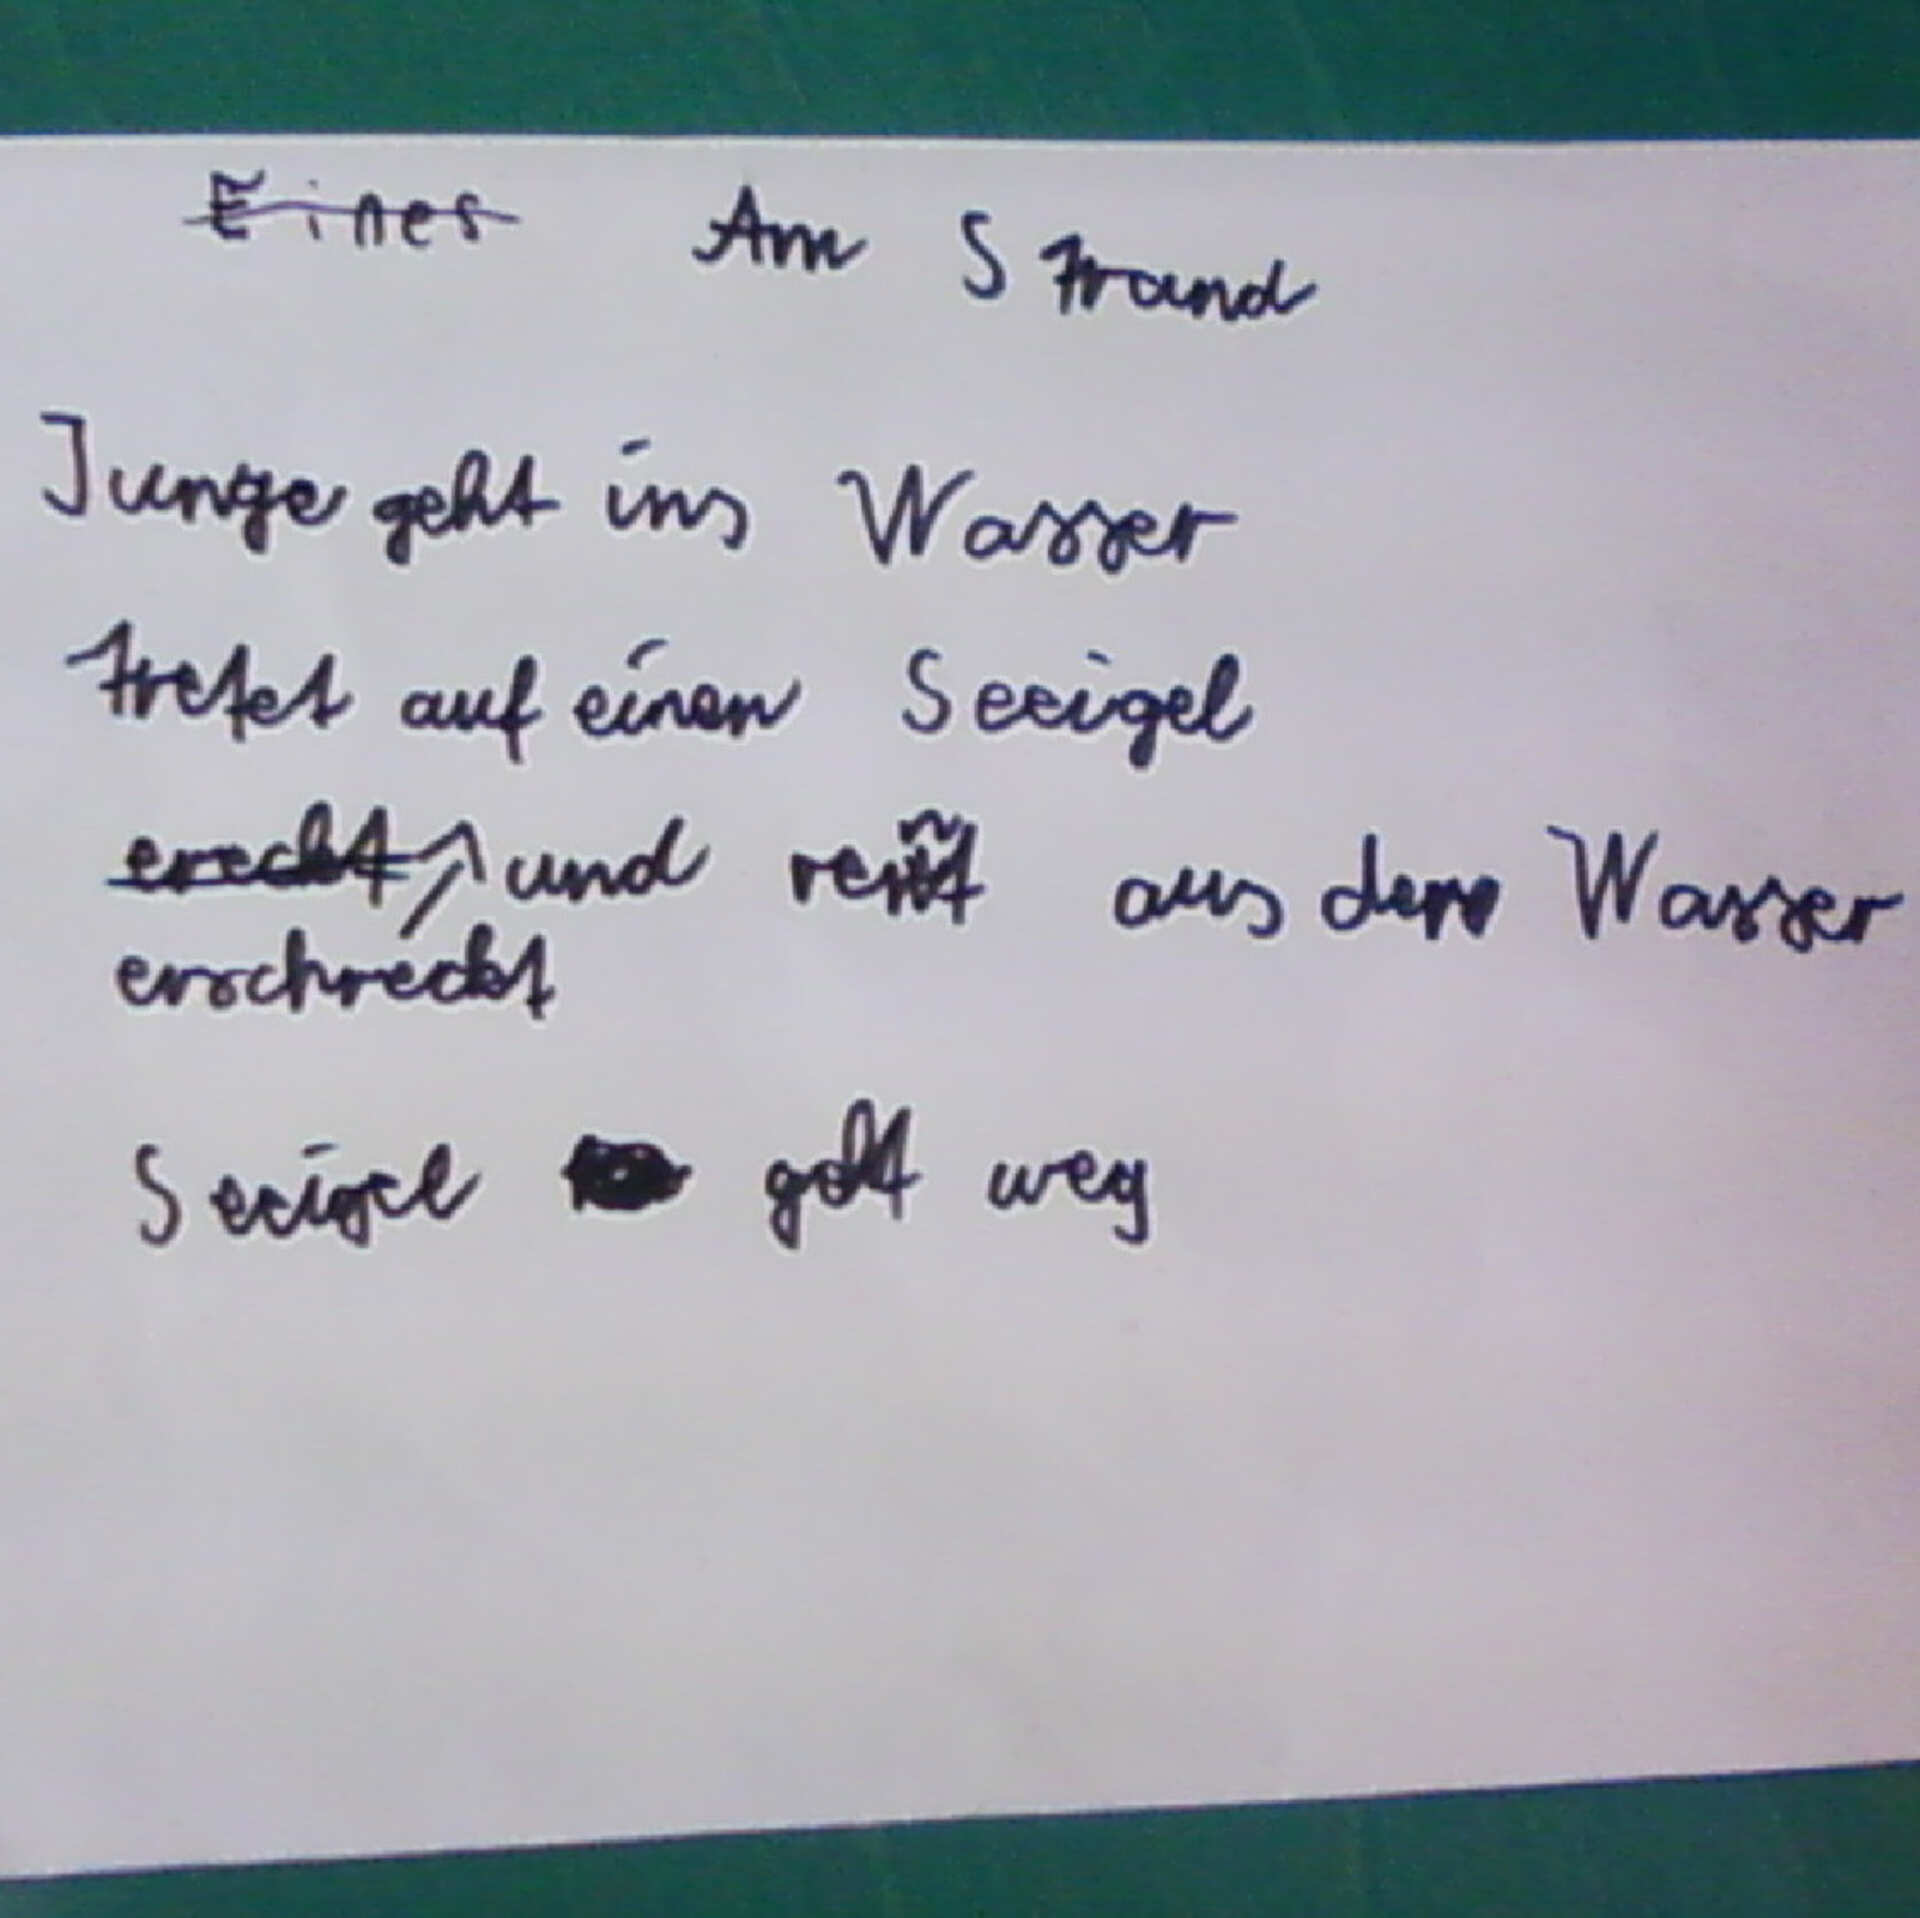 Eines Am Strand
Junge geht ins Wasser
tretet auf einen Seeigel
und rennt aus dem Wasser
erschreckt
Seeigel geht weg